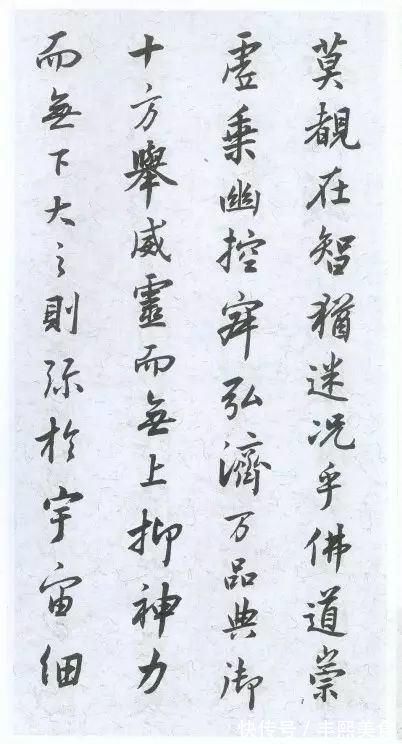 莫覩在智猶迷况乎佛道崇
虛乗幽控寂弘濟万品典御
十方舉威靈而無上抑神力
而無下大之則弥於宇宙細
快传号/丰熙美食